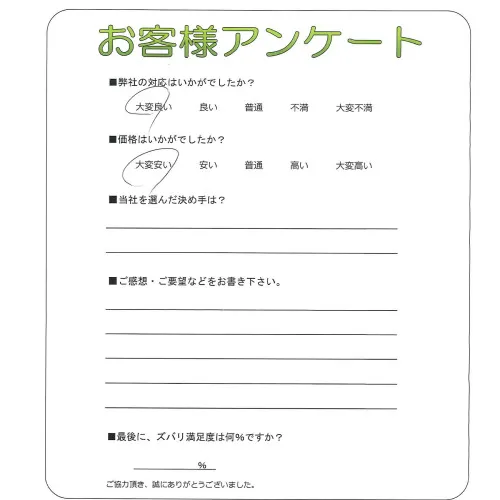 お客様アンケート
■弊社の対応はいかがでしたか？
大変良い　良い　普通　不満　大変不満
■価格はいかがでしたか？
大変安い　安い　普通　高い　大変高い
■当社を選んだ決め手は？
■ご感想・ご要望などをお書き下さい。
■最後に、ズバリ満足度は何%ですか？
%
ご協力頂き、誠にありがとうございました。